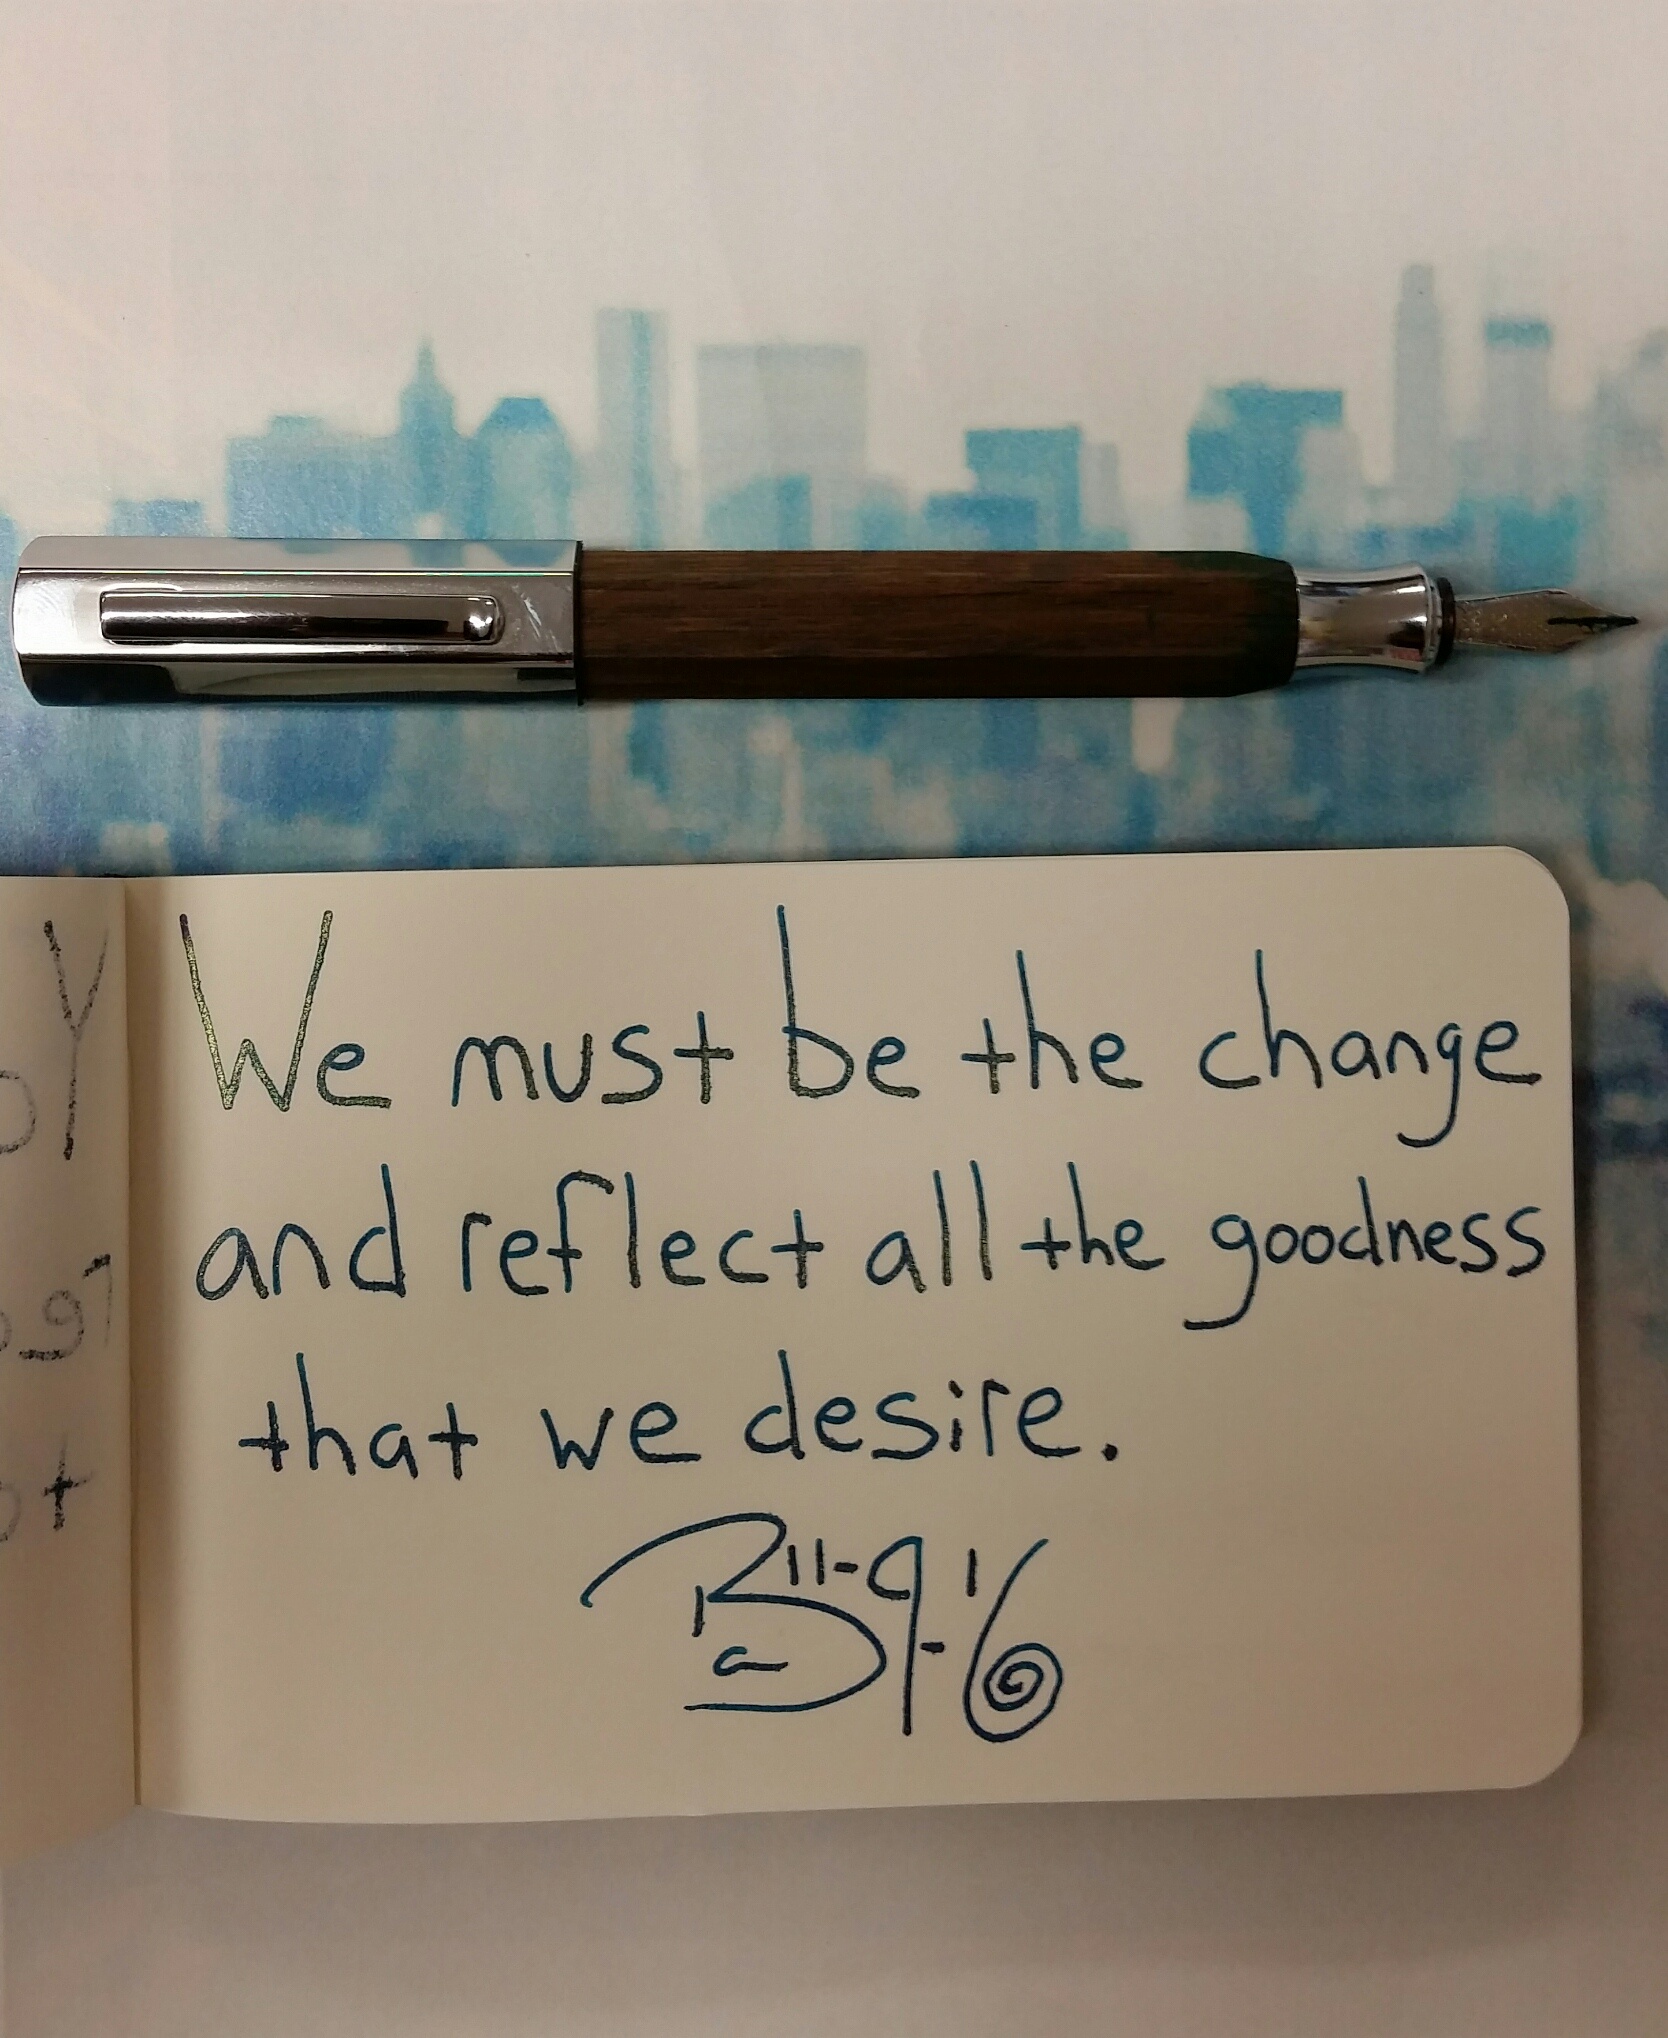 We must be the change
and reflect all the goodness
that we desire.
11-9-16